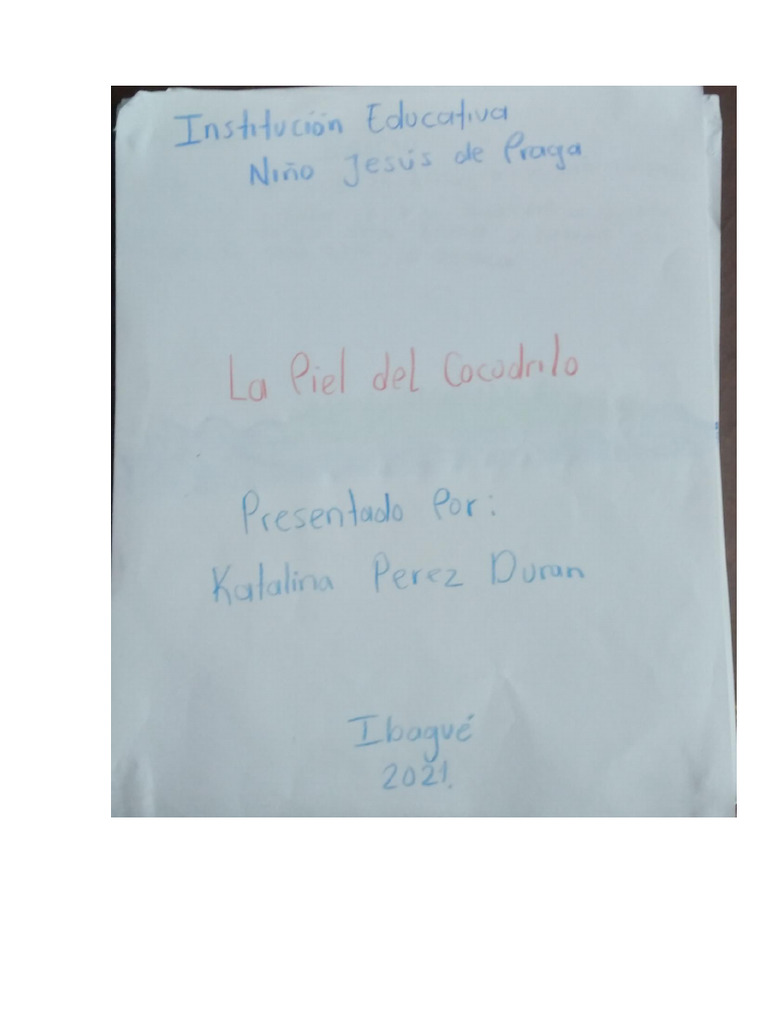 Institución Educativa
Niño Jesús de Praga
La Piel del Cocodrilo
Presentado Por:
Katalina Perez Duran
Ibagué
2021.